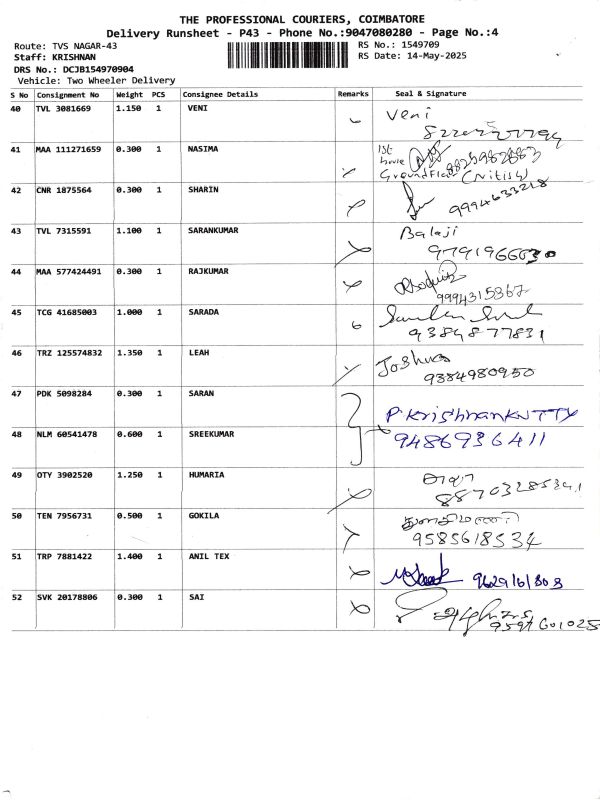 THE PROFESSIONAL COURIERS, COIMBATORE
Delivery Runsheet - P43 - Phone No.:9047080280 - Page No.:4
Route: TVS NAGAR-43
RS No.: 1549709
Staff: KRISHNAN
RS Date: 14-May-2025
DRS No.: DCJB154970904
Vehicle: Two Wheeler Delivery
S No Consignment No Weight PCS Consignee Details Remarks Seal & Signature
40 TVL 3081669 1.150 1 VENI
Veni
41 MAA 111271659 0.300 1 NASIMA
1st
house
Ground Floor (Nitish)
42 CNR 1875564 0.300 1 SHARIN
9994633228
43 TVL 7315591 1.100 1 SARANKUMAR
Balaji
9791966030
44 MAA 577424491 0.300 1 RAJKUMAR
9994315367
45 TCG 41685003 1.000 1 SARADA
9384877831
46 TRZ 125574832 1.350 1 LEAH
Joshua
9384980950
47 PDK 5098284 0.300 1 SARAN
P. KrishnanKUTTY
48 NLM 60541478 0.600 1 SREEKUMAR
9486936411
49 OTY 3902520 1.250 1 HUMARIA
8870328534
50 TEN 7956731 0.500 1 GOKILA
துளசிமணி
9585618534
51 TRP 7881422 1.400 1 ANIL TEX
9629161808
52 SVK 20178806 0.300 1 SAI